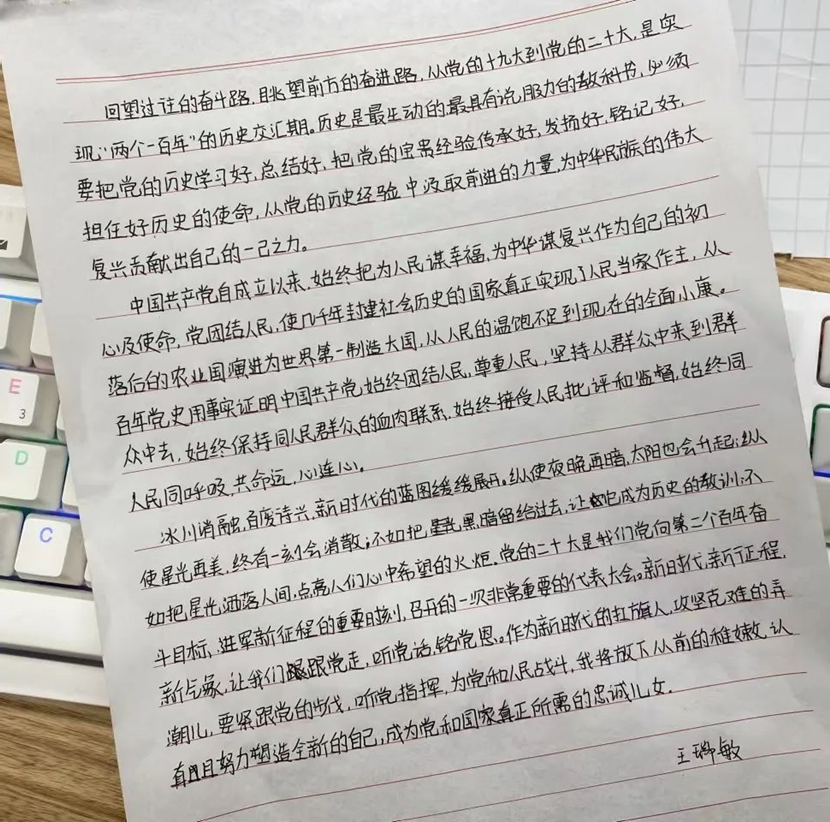 回望过往的奋斗路,眺望前方的奋进路,从党的十九大到党的二十大,是实
现“两个一百年”的历史交汇期。历史是最生动的最具有说服力的教科书,必须
要把党的历史学习好,总结好,把党的宝贵经验传承好,发扬好,铭记好,
担任好历史的使命,从党的历史经验中汲取前进的力量,为中华民族的伟大
复兴贡献出自己的一己之力。
中国共产党自成立以来,始终把为人民谋幸福,为中华谋复兴作为自己的初
心及使命,党团结人民,使几千年封建社会历史的国家真正实现了人民当家作主,从
落后的农业国演进为世界第一制造大国,从人民的温饱不足到现在的全面小康。
百年党史用事实证明中国共产党始终团结人民,尊重人民,坚持从群众中来到群
众中去,始终保持同人民群众的血肉联系,始终接受人民批评和监督,始终同
人民同呼吸,共命运,心连心。
冰川消融,百废待兴,新时代的蓝图缓缓展开。纵使夜晚再暗,太阳也会升起;纵
使星光再美,终有一刻会消散;不如把黑暗留给过去,让它成为历史的教训;不
如把星光洒落人间,点亮人们心中希望的火炬。党的二十大是我们党向第二个百年奋
斗目标、进军新征程的重要时刻,召开的一次非常重要的代表大会。新时代,新征程,
新气象,让我们跟党走,听党话,铭党恩。作为新时代的扛旗人,攻坚克难的弄
潮儿,要紧跟党的步伐,听党指挥,为党和人民战斗,我将放下从前的稚嫩,认
真且努力塑造全新的自己,成为党和国家真正所需的忠诚儿女.
王瑞敏
E
3
D
C